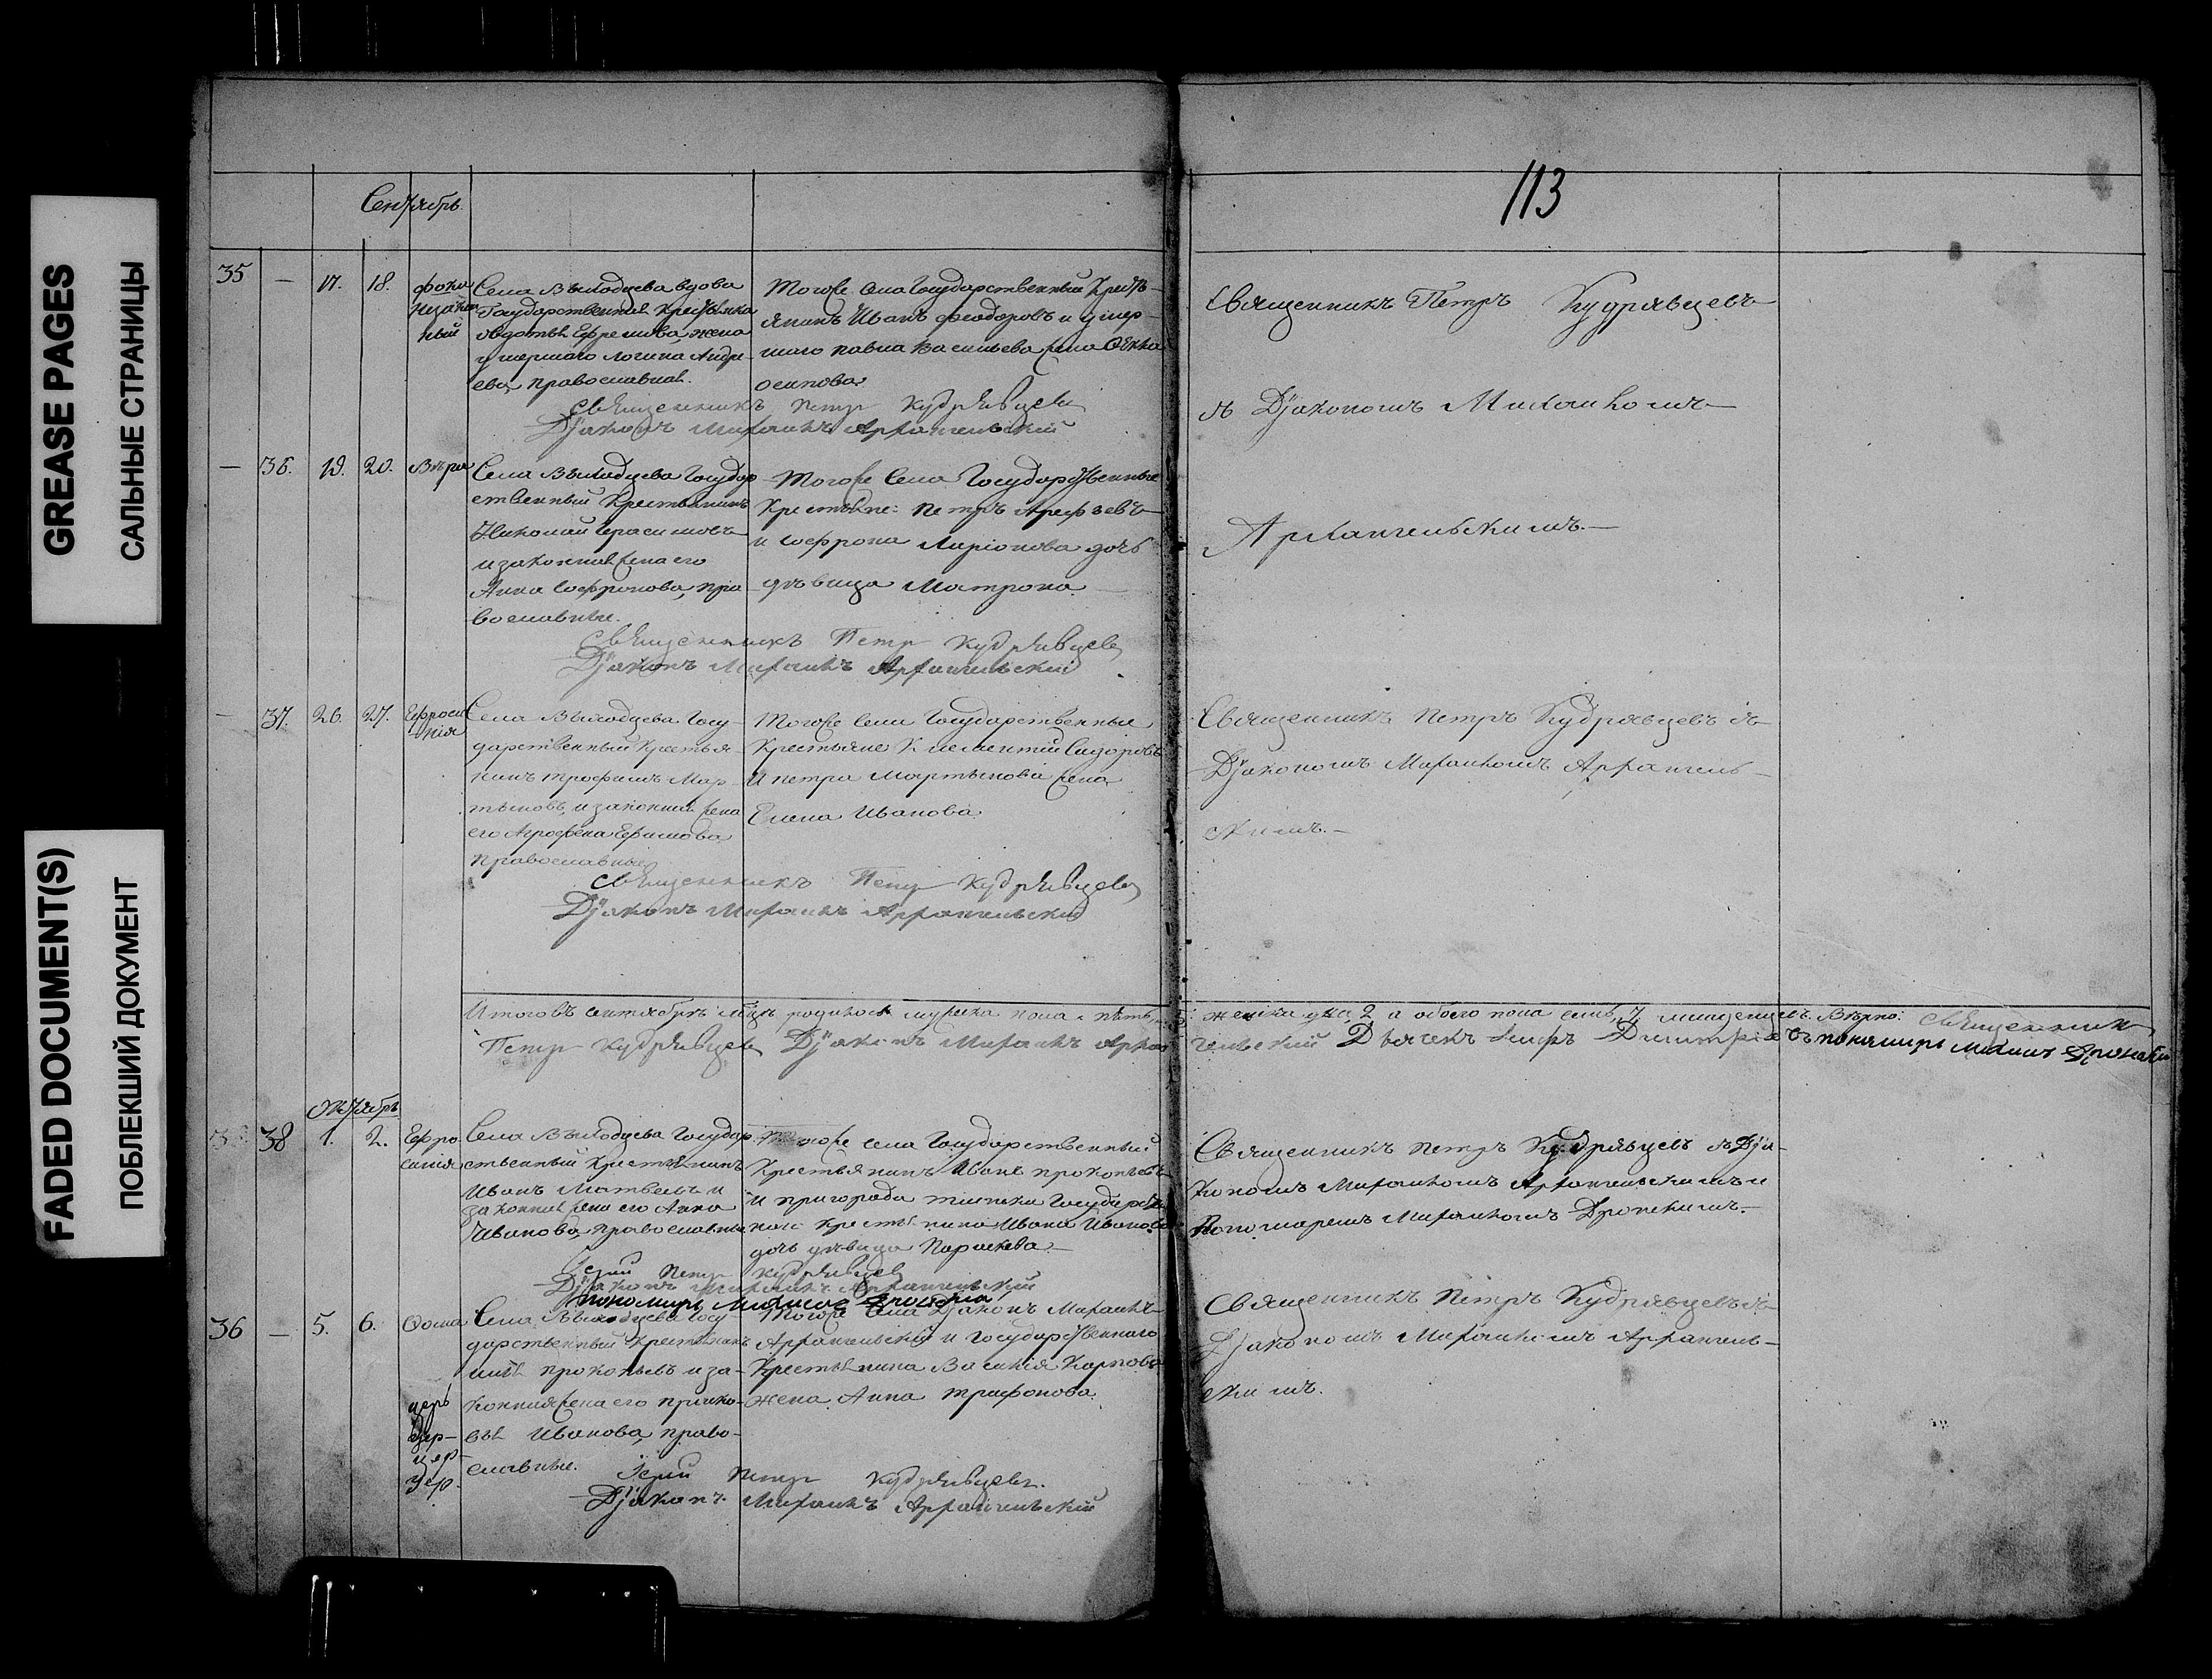 GREASE PAGES
САЛЬНЫЕ СТРАНИЦЫ
FADED DOCUMENT(S)
ПОБЛЕКШИЙ ДОКУМЕНТ
113
Сентябрь
35 — 17. 18. фока незаконный
Села Выходцева вдова
Государственная Крестьянка
Евдотья Ефремова, жена
умершаго Логина Андре-
ева, православная.
Тогоже села Государственный Кресть-
янинъ Иванъ Феодоровъ и умер-
шаго Павла Васильева жена
Осипова
Священникъ Петръ Кудрявцевъ
съ Дьякономъ Михаиломъ
Архангельскимъ.—
Священникъ Петр Кудрявцевъ
Дьяконъ Михаилъ Архангельский
— 36. 19. 20. Вѣра
Села Выходцева Государ
ственный Крестьянинъ
Николай Герасимовъ
и законная жена его
Анна Софронова, пра-
вославные.
Тогоже Села Государственные
Крестьяне: Петръ Арефьевъ
и Софрона Ларіонова дочь
дѣвица Матрона
Священникъ Петр Кудрявцевъ
Дьяконъ Михаилъ Архангельский
— 37. 26. 27. Ефросинія
Села Выходцева Госу-
дарственный Крестья-
нинъ Трофимъ Мар-
тыновъ, и законная жена
его Агрофена Ефимова
православные
Тогоже села Государственные
Крестьяне Климентій Сидоровъ
и Петра Мартынова жена
Елена Иванова
Священникъ Петръ Кудрявцевъ съ
Дьякономъ Михаиломъ Архангель-
скимъ.—
Священникъ Петр Кудрявцевъ
Дьяконъ Михаилъ Архангельский
Итого въ сентябрѣ мцѣ родилось мужска пола пять, 5. женска два 2 а обоего пола семь, 7 младенцевъ. Вѣрно: Священникъ
Петр Кудрявцевъ Дьяконъ Михаилъ Архангельский Дьячекъ Димитріевъ пономарь
Октябрь
38 1. 2. Ефросинія
Села Выходцева Государ
ственный Крестьянинъ
Иванъ Матвеевъ и
законная жена его Анна
Иванова, православные
Тогоже села Государственный
Крестьянинъ Иванъ Прокопьевъ
и пригорода Государствен-
наго крестьянина Ивана Иванова
дочь дѣвица Параскева.—
Священникъ Петръ Кудрявцевъ съ Дья-
кономъ Михаиломъ Архангельскимъ и
Пономаремъ Михаиломъ
Іерей Петр Кудрявцев
Дьяконъ Михаилъ Архангельский
пономарь
36 — 5. 6. Фома
Села Выходцева Госу-
дарственный Крестьянинъ
Прокопьевъ и за-
конная жена его Праско-
вья Иванова, право-
славные.
Тогоже Села Дьяконъ Михаилъ
Архангельскій и Государственнаго
Крестьянина Василія Карпова
жена Анна Трифонова.
Священникъ Петръ Кудрявцевъ съ
Дьякономъ Михаиломъ Архангель-
скимъ.
Іерей Петр Кудрявцевъ.
Дьяконъ Михаилъ Архангельскій